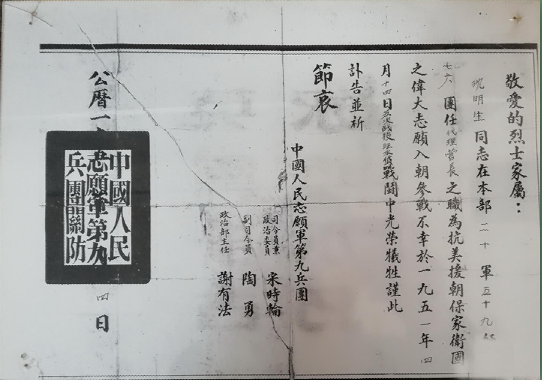 敬愛的烈士家屬：
明生同志在本部二十軍五十九
團任代理營長之職為抗美援朝保家衛國
之偉大志願入朝參戰不幸於一九五一年四
月十四日戰鬪中光荣犠牲謹此
訃告並祈
節哀
中國人民志願軍第九兵團
司令員兼政治委員 宋時輪
副司令員 陶勇
政治部主任 謝有法
公曆一
四日
中國人民
志願軍第九
兵團關防